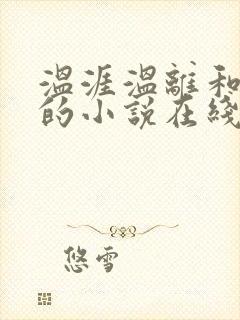 温涯温離和
的小说在綫
悠雪